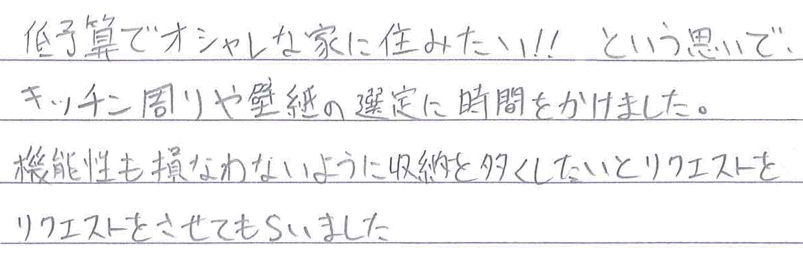 低予算でオシャレな家に住みたい!! という思いで、
キッチン周りや壁紙の選定に時間をかけました。
機能性も損なわないように収納を多くしたいとリクエストを
リクエストをさせてもらいました